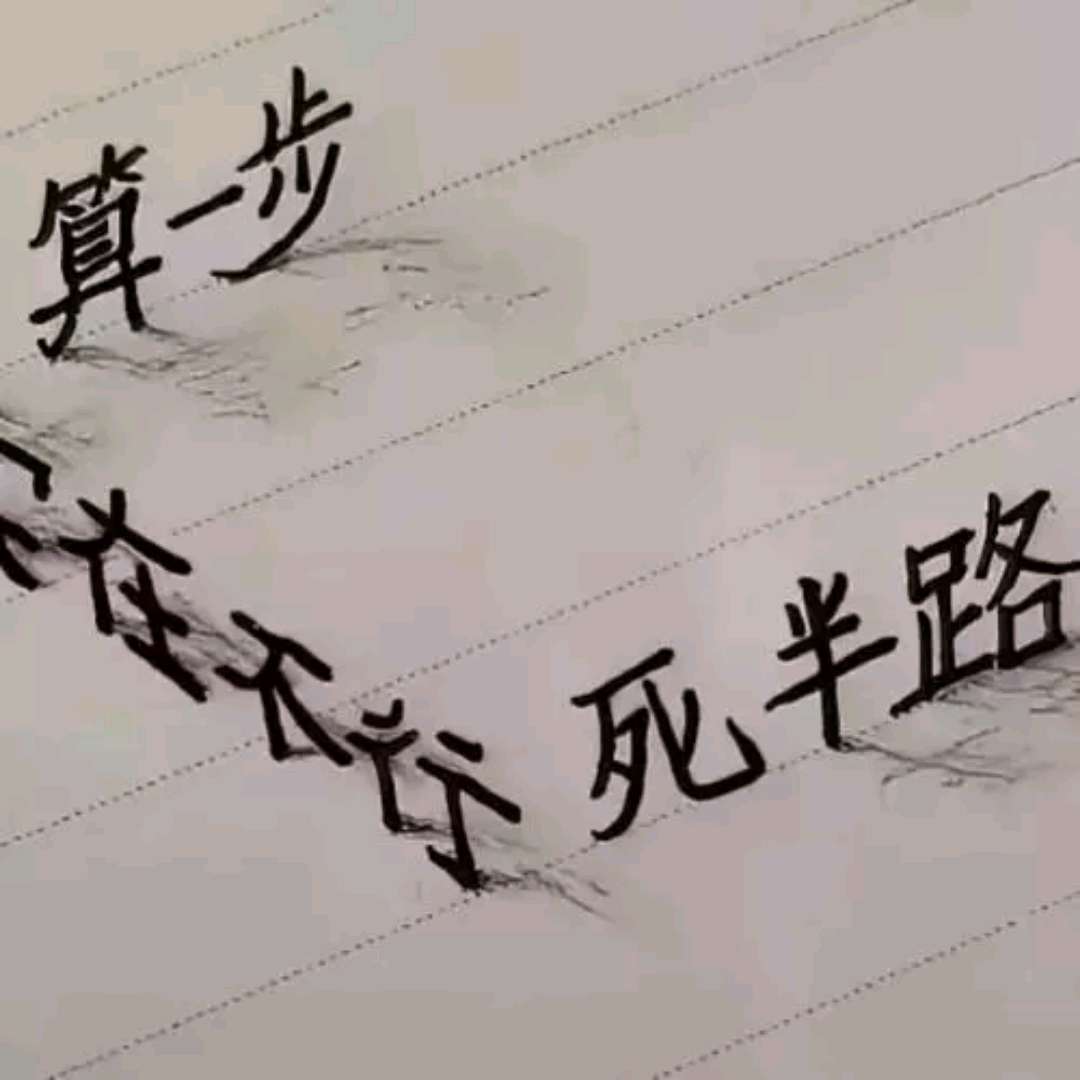 算一步
在不行
死半路